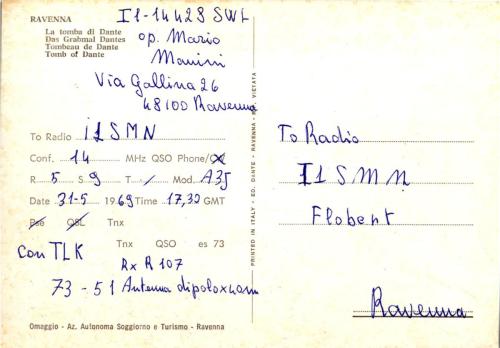 RAVENNA
La tomba di Dante
Das Grabmal Dantes
Tombeau de Dante
Tomb of Dante
I1-14428 SWL
op. Mario
Manini
Via Gallina 26
48100 Ravenna
To Radio i1SMN
Conf. 14 MHz QSO Phone/CW
R 5 S 9 T / Mod. A3J
Date 31-5 1969 Time 17,32 GMT
Pse QSL Tnx
con TLK Tnx QSO es 73
Rx R 107
73 - 51 Antenna
Omaggio - Az. Autonoma Soggiorno e Turismo - Ravenna
PRINTED IN ITALY - ED. DANTE - RAVENNA - VIETATA
To Radio
I1SMN
Flobert
Ravenna